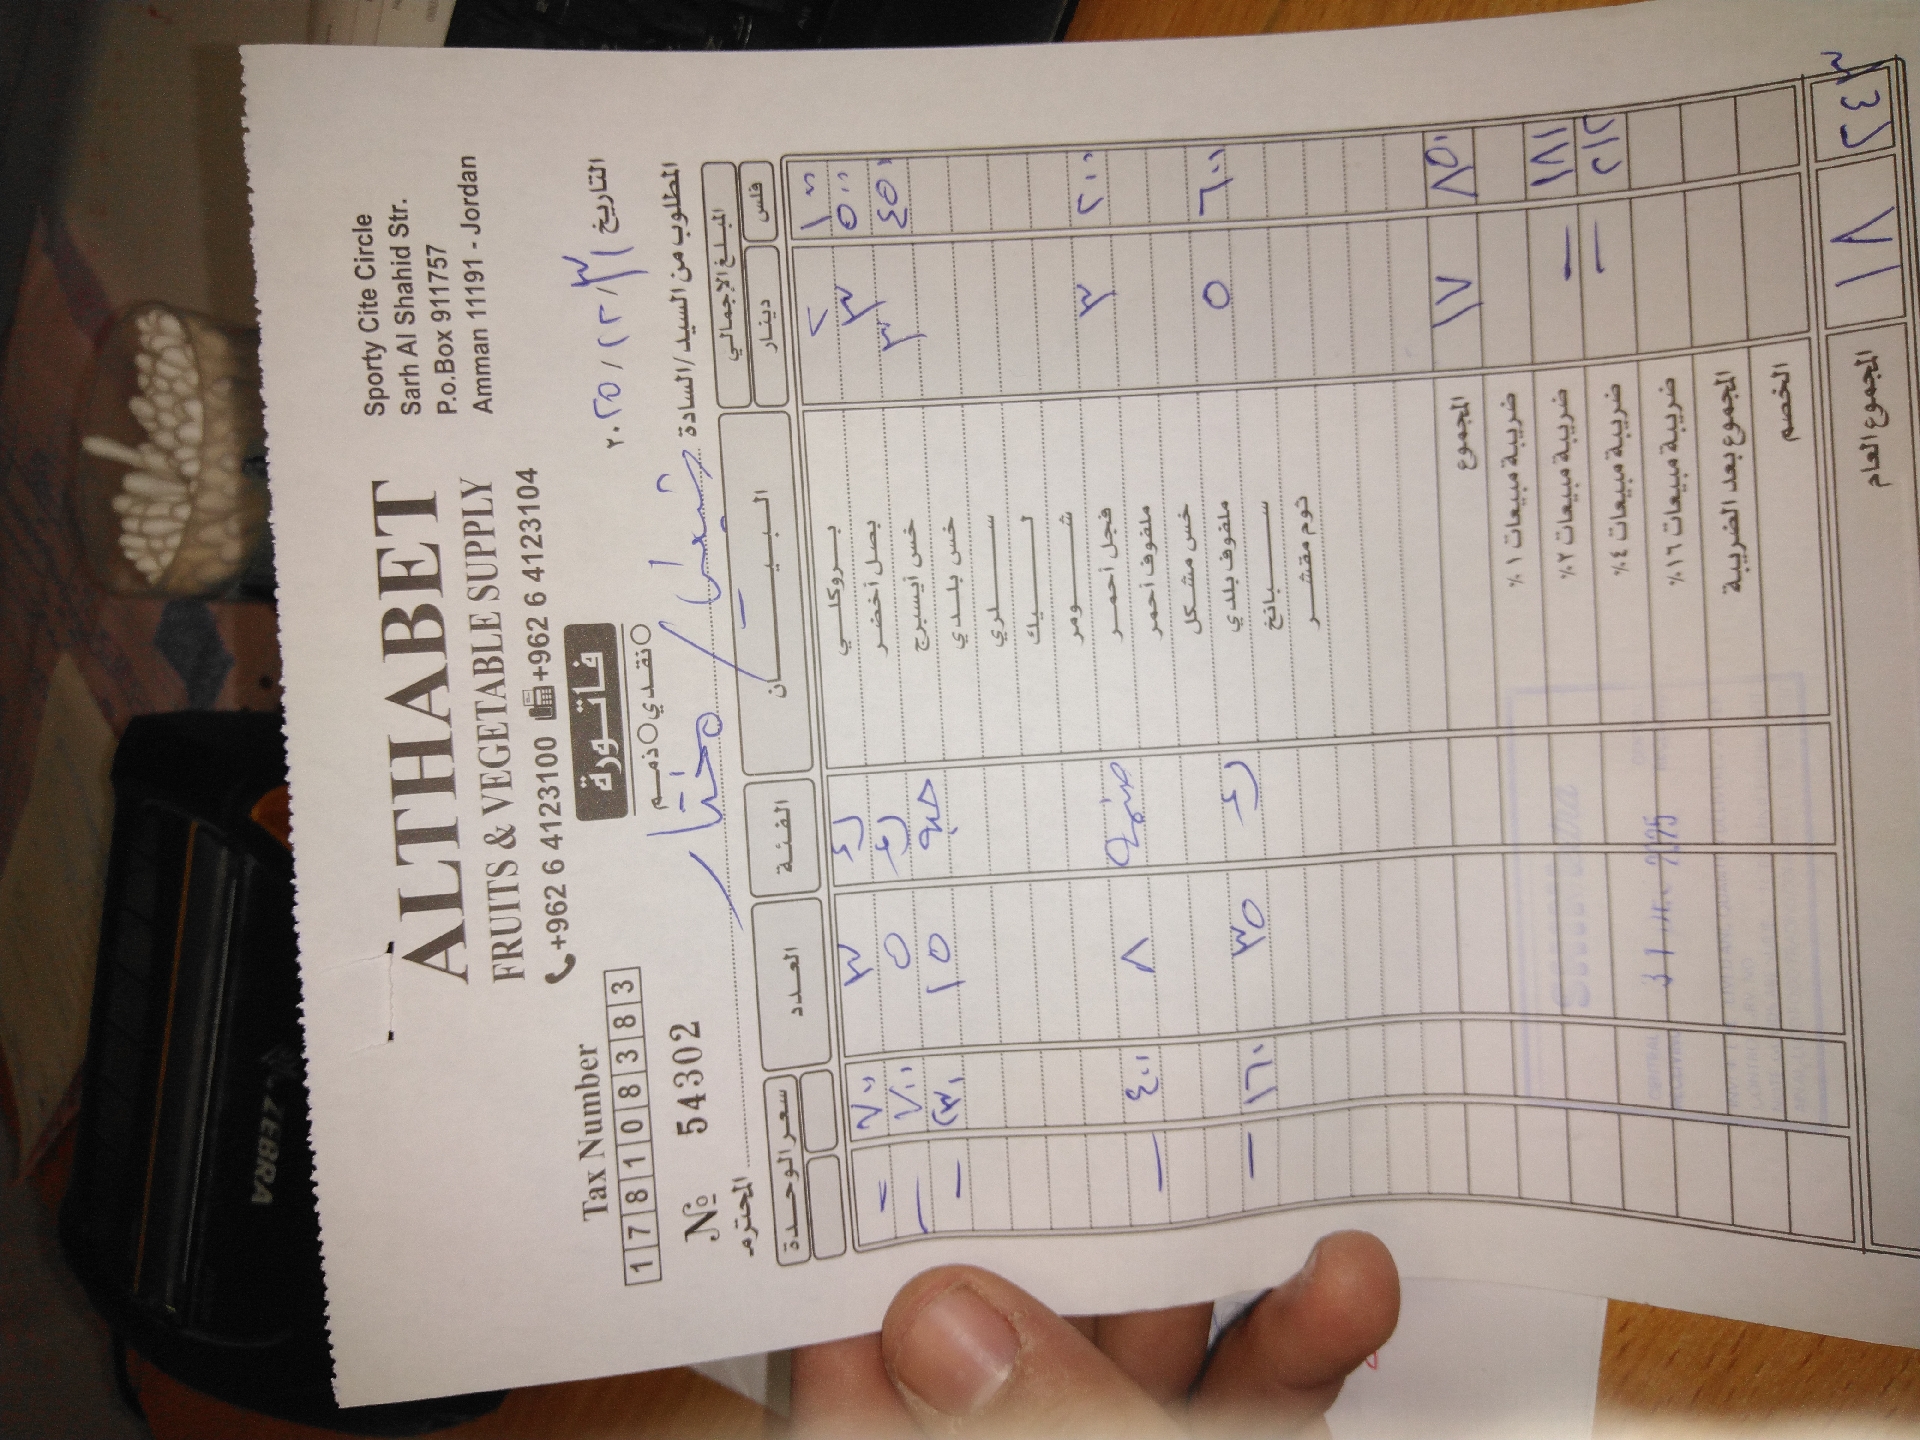 ALTHABET
FRUITS & VEGETABLE SUPPLY
+962 6 4123100 +962 6 4123104
Sporty Cite Circle
Sarh Al Shahid Str.
P.o.Box 911757
Amman 11191 - Jordan
Tax Number
1 7 8 1 0 8 3 8 3
فاتورة
نقدي ذمم
Nº 54302
التاريخ ٣١ / ١٢ / ٢٠٢٥
المطلوب من السيد/السادة المحترم
المبلغ الإجمالي البيان الفئة العدد سعر الوحدة
فلس دينار
١٠٠ ٢ بروكلي ٣ ٧٠٠ -
٥٠٠ ٣ بصل أخضر ٥ ٧٠٠ -
٤٥٠ ٣ خس آيسبرج حبه ١٥ ٢٣٠ -
خس بلدي
سلري
ليك
شومر
٢٠٠ ٣ فجل أحمر ٨ ٤٠٠ -
ملفوف أحمر
خس مشكل
٦٠٠ ٥ ملفوف بلدي ٣٥ ١٦٠ -
سبانخ
ثوم مقشر
٨٥٠ ١٧ المجموع
ضريبة مبيعات ١ %
١٨١ - ضريبة مبيعات ٢ %
٢١٢ - ضريبة مبيعات ٤ %
ضريبة مبيعات ١٦ %
المجموع بعد الضريبة
الخصم
٢٤٣ ١٨ المجموع العام
ZEBRA